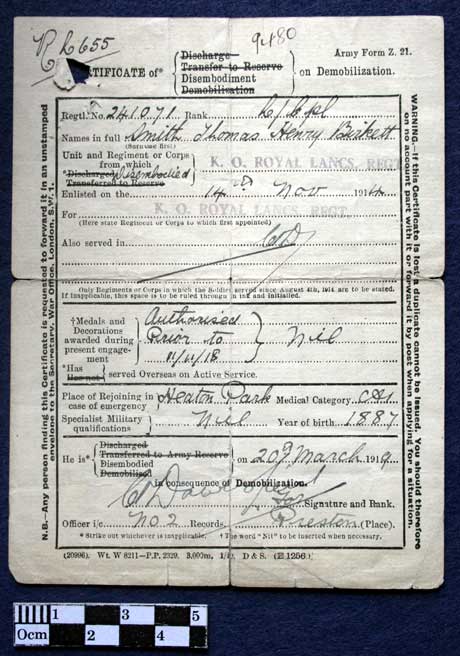 R L 655
9480
Army Form Z. 21.
CERTIFICATE of* { Discharge
Transfer to Reserve
Disembodiment
Demobilization } on Demobilization.
Regtl. No. 241071 Rank L/Cpl
Names in full Smith Thomas Henry Birkett
(Surname first)
Unit and Regiment or Corps
from which
*Discharged Disembodied
Transferred to Reserve
K. O. ROYAL LANCS. REGT.
Enlisted on the 14th Nov 1914
For K. O. ROYAL LANCS. REGT.
(Here state Regiment or Corps to which first appointed)
Also served in
Only Regiments or Corps in which the Soldier served since August 4th, 1914 are to be stated.
If inapplicable, this space is to be ruled through in ink and initialled.
†Medals and
Decorations
awarded during
present engagement
Authorised
Prior to
11/11/18
Nil
*Has
Has not served Overseas on Active Service.
Place of Rejoining in
case of emergency
Heaton Park Medical Category
Specialist Military
qualifications
Niel Year of birth 1887
He is* { Discharged
Transferred to Army Reserve
Disembodied
Demobilized } on 20 March 1919
in consequence of Demobilization.
Signature and Rank.
Officer i/c No 2 Records. Preston (Place).
* Strike out whichever is inapplicable. † The word "Nil" to be inserted when necessary.
(20996). Wt. W 8211—P.P. 2329. 3,000m, 1/19, D & S. (E 1256.)
N.B.—Any person finding this Certificate is requested to forward it in an unstamped
envelope to the Secretary, War Office, London, S.W. 1.
WARNING.—If this Certificate is lost a duplicate cannot be issued. You should therefore
on no account part with it or forward it by post when applying for a situation.
1 3 5
0cm 2 4